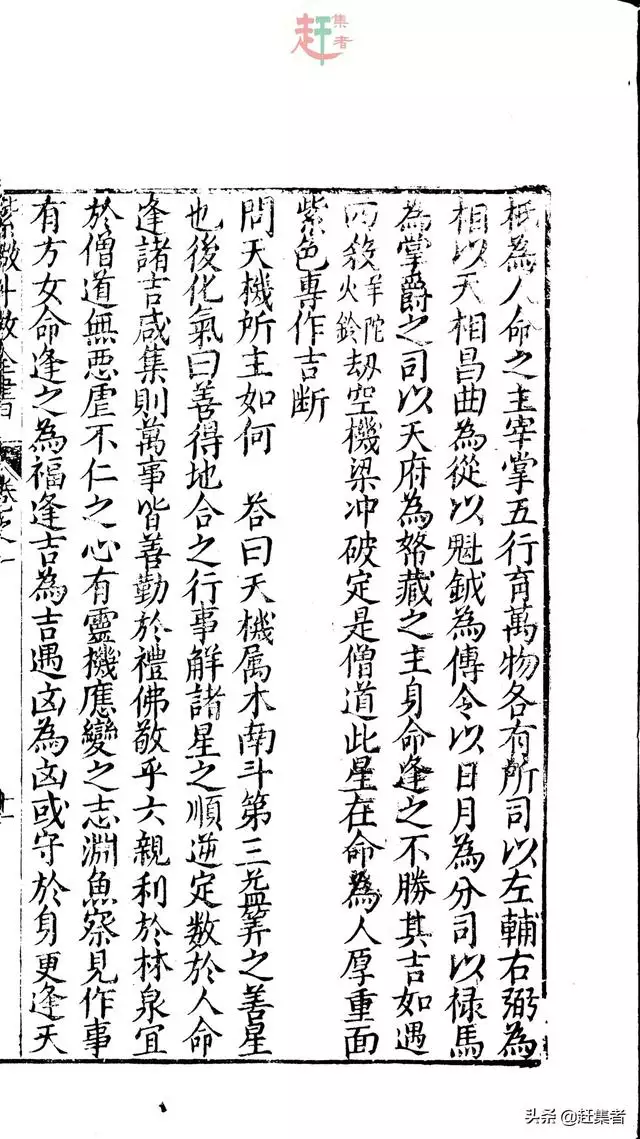 赶集者
柢為人命之主宰掌五行育萬物各有所司以左輔右弼為
相以天相昌曲為從以魁鉞為傳令以日月為分司以祿馬
為掌爵之司以天府為帑藏之主身命逢之不勝其吉如遇
四殺羊陀火鈴劫空機梁冲破定是僧道此星在命為人厚重面
紫色專作吉断
問天機所主如何　荅曰天機属木南斗第三益筭之善星
也後化氣曰善得地合之行事解諸星之順逆定数於人命
逢諸吉咸集則萬事皆善勤於禮佛敬乎六親利於林泉宜
於僧道無悪虐不仁之心有靈機應變之志淵魚察見作事
有方女命逢之為福逢吉為吉遇凶為凶或守於身更逢天
紫微斗数全書
卷之一
十一
头条 @赶集者